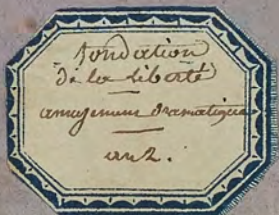 fondation
de la liberté
amusemens dramatiques
an 2.